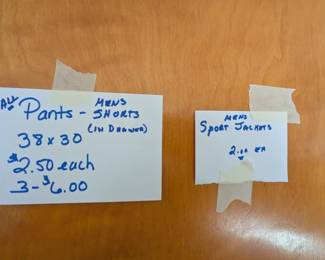 ALL Pants - MENS SHORTS
(IN DRAWER)
38 x 30
$2.50 each
3 - $6.00
MENS
SPORT JACKETS
2.00 EA